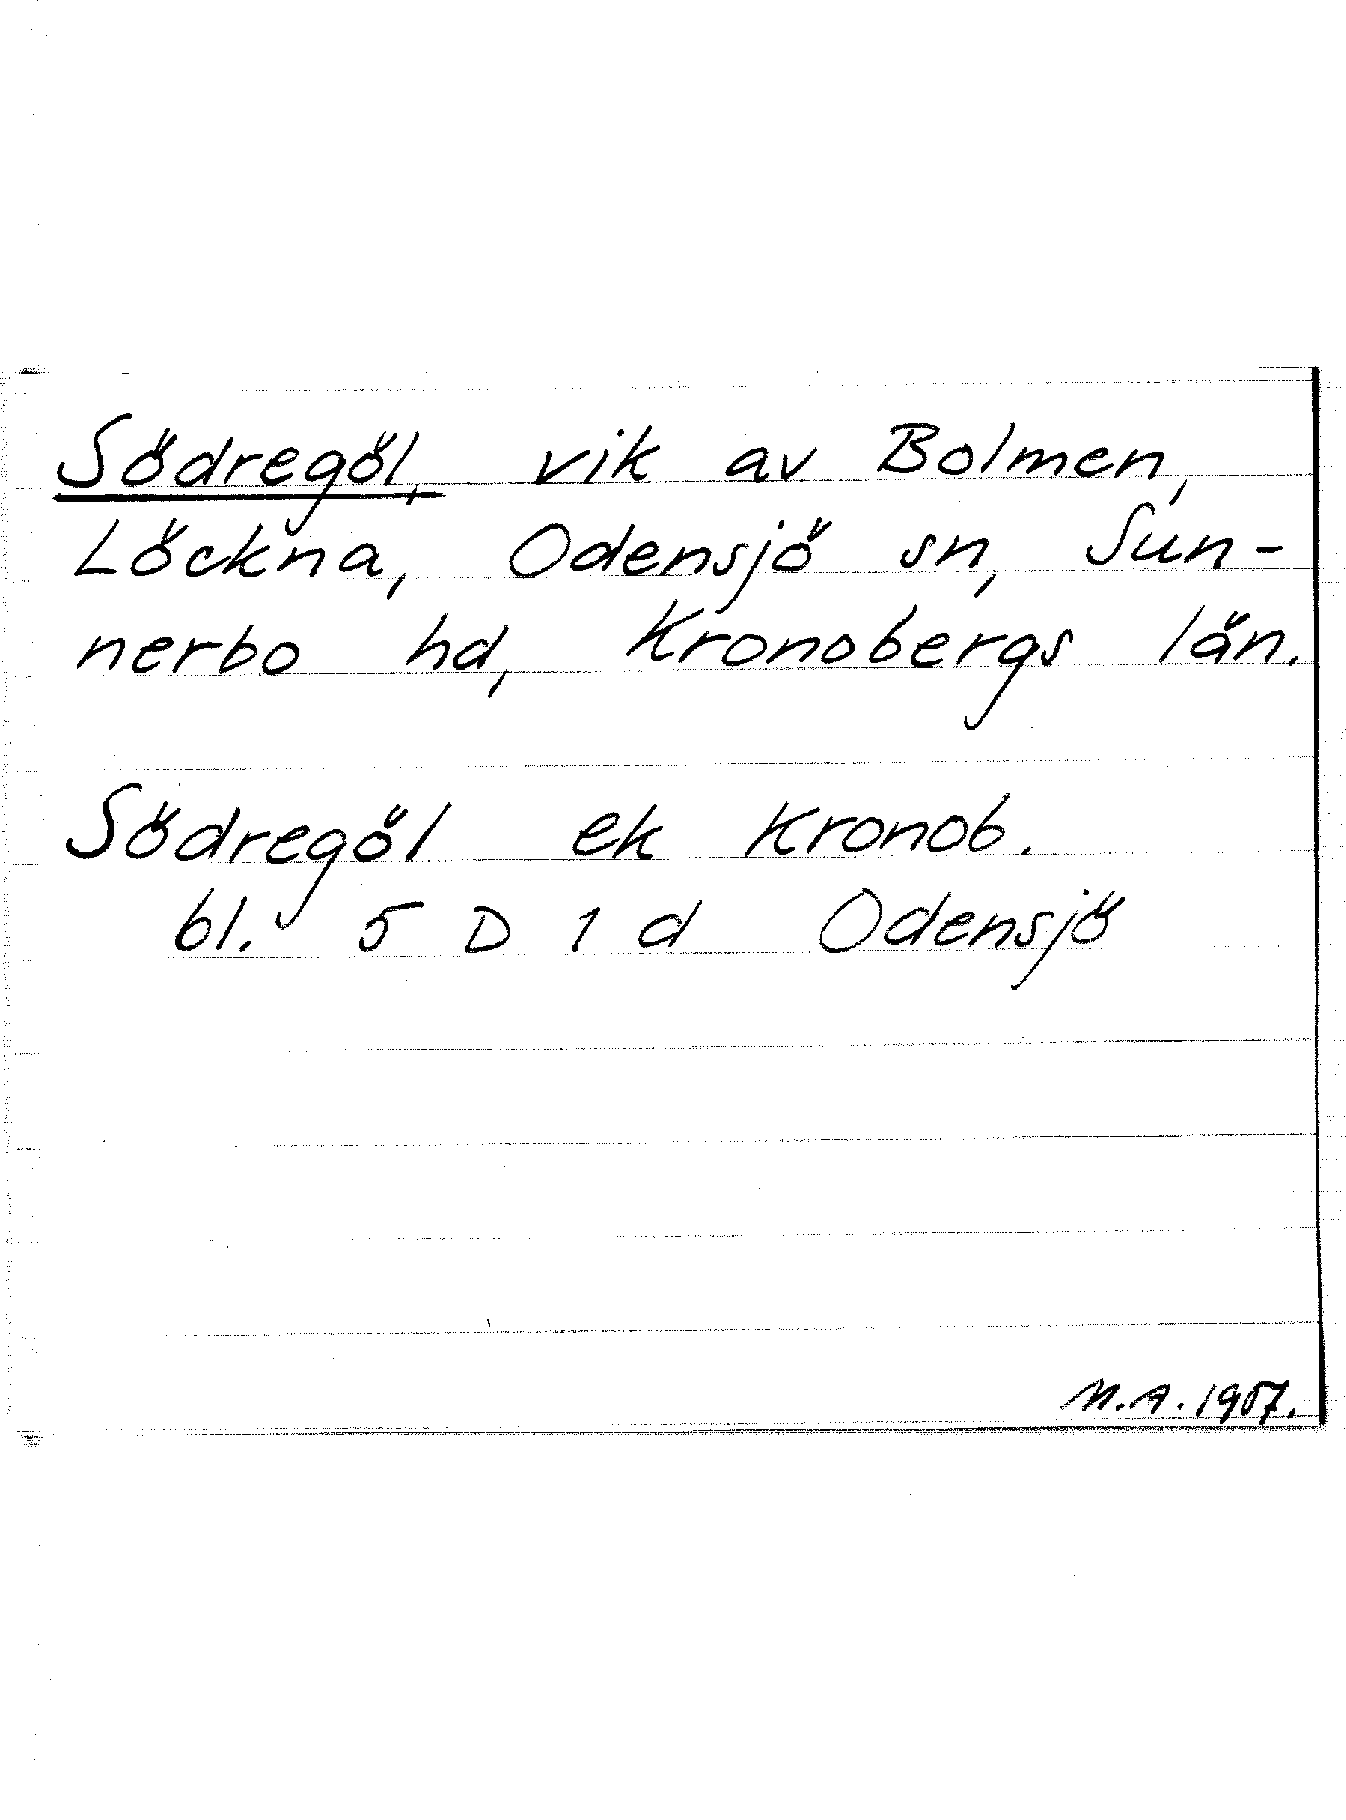 Södregöl, vik av Bolmen,
Löckna, Odensjö sn, Sun-
nerbo hd, Kronobergs län.
Södregöl ek Kronob.
bl. 5 D 1 d Odensjö
M.A. 1957.